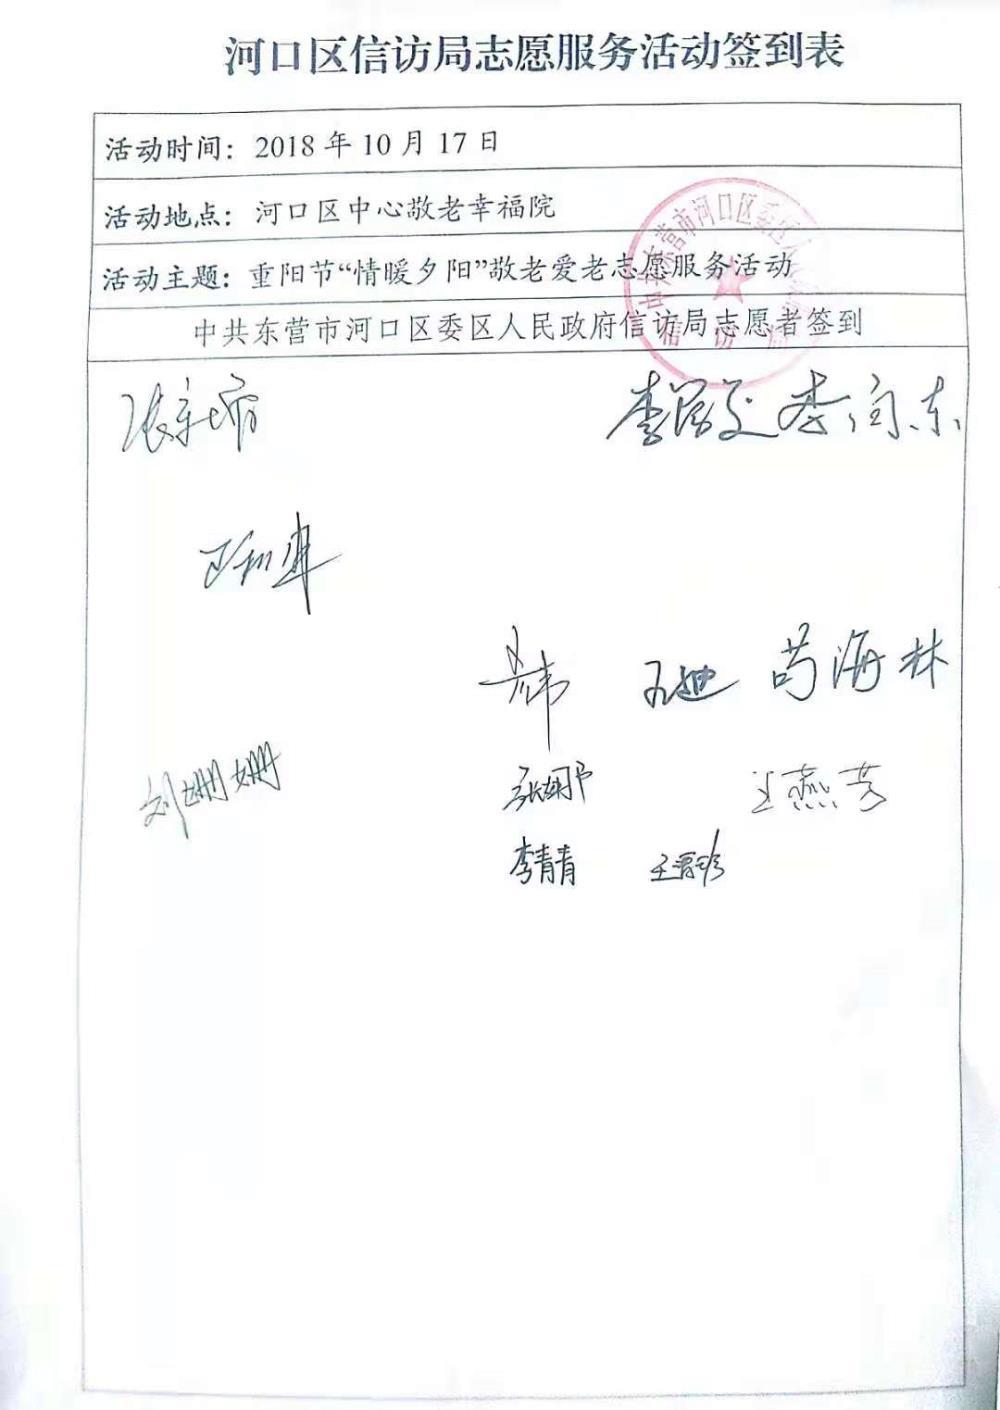 河口区信访局志愿服务活动签到表
活动时间：2018 年 10 月 17 日
活动地点：河口区中心敬老幸福院
活动主题：重阳节“情暖夕阳”敬老爱老志愿服务活动
中共东营市河口区委区人民政府信访局志愿者签到
李向东
王迪 苟海林
刘姗姗 张娜 王燕芳
李青青